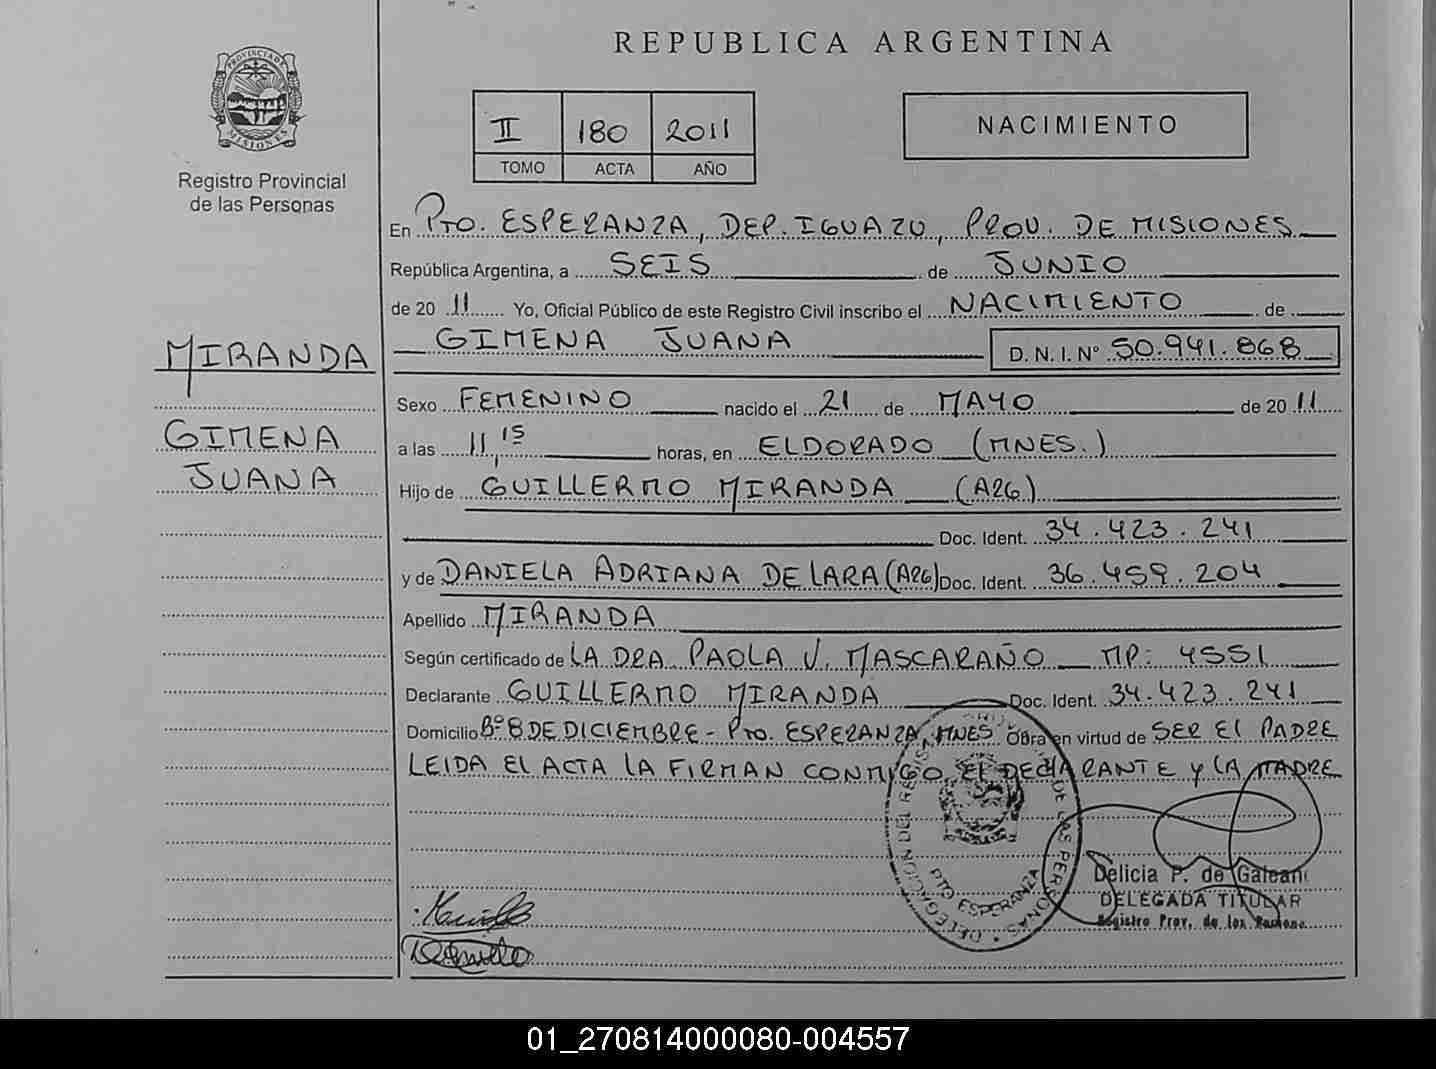 REPUBLICA ARGENTINA
PROVINCIA DE MISIONES
Registro Provincial
de las Personas
II 180 2011
TOMO ACTA AÑO
NACIMIENTO
En PTO. ESPERANZA, DEP. IGUAZU, PROV. DE MISIONES
República Argentina, a SEIS de JUNIO
de 20 11 Yo, Oficial Público de este Registro Civil inscribo el NACIMIENTO de
GIMENA JUANA D. N. I. Nº 50.941.868
MIRANDA
GIMENA
JUANA
Sexo FEMENINO nacido el 21 de MAYO de 20 11
a las 11,15 horas, en ELDORADO (MNES.)
Hijo de GUILLERMO MIRANDA (A26)
Doc. Ident. 34.423.241
y de DANIELA ADRIANA DE LARA (A26) Doc. Ident. 36.459.204
Apellido MIRANDA
Según certificado de LA DRA PAOLA V. MASCARAÑO MP: 4551
Declarante GUILLERMO MIRANDA Doc. Ident. 34.423.241
Domicilio Bº 8 DE DICIEMBRE - PTO. ESPERANZA, MNES Obra en virtud de SER EL PADRE
LEIDA EL ACTA LA FIRMAN CONMIGO EL DECLARANTE Y LA MADRE
PTO ESPERANZA
Delicia P. de Galeano
DELEGADA TITULAR
Registro Prov. de las Personas
01_270814000080-004557